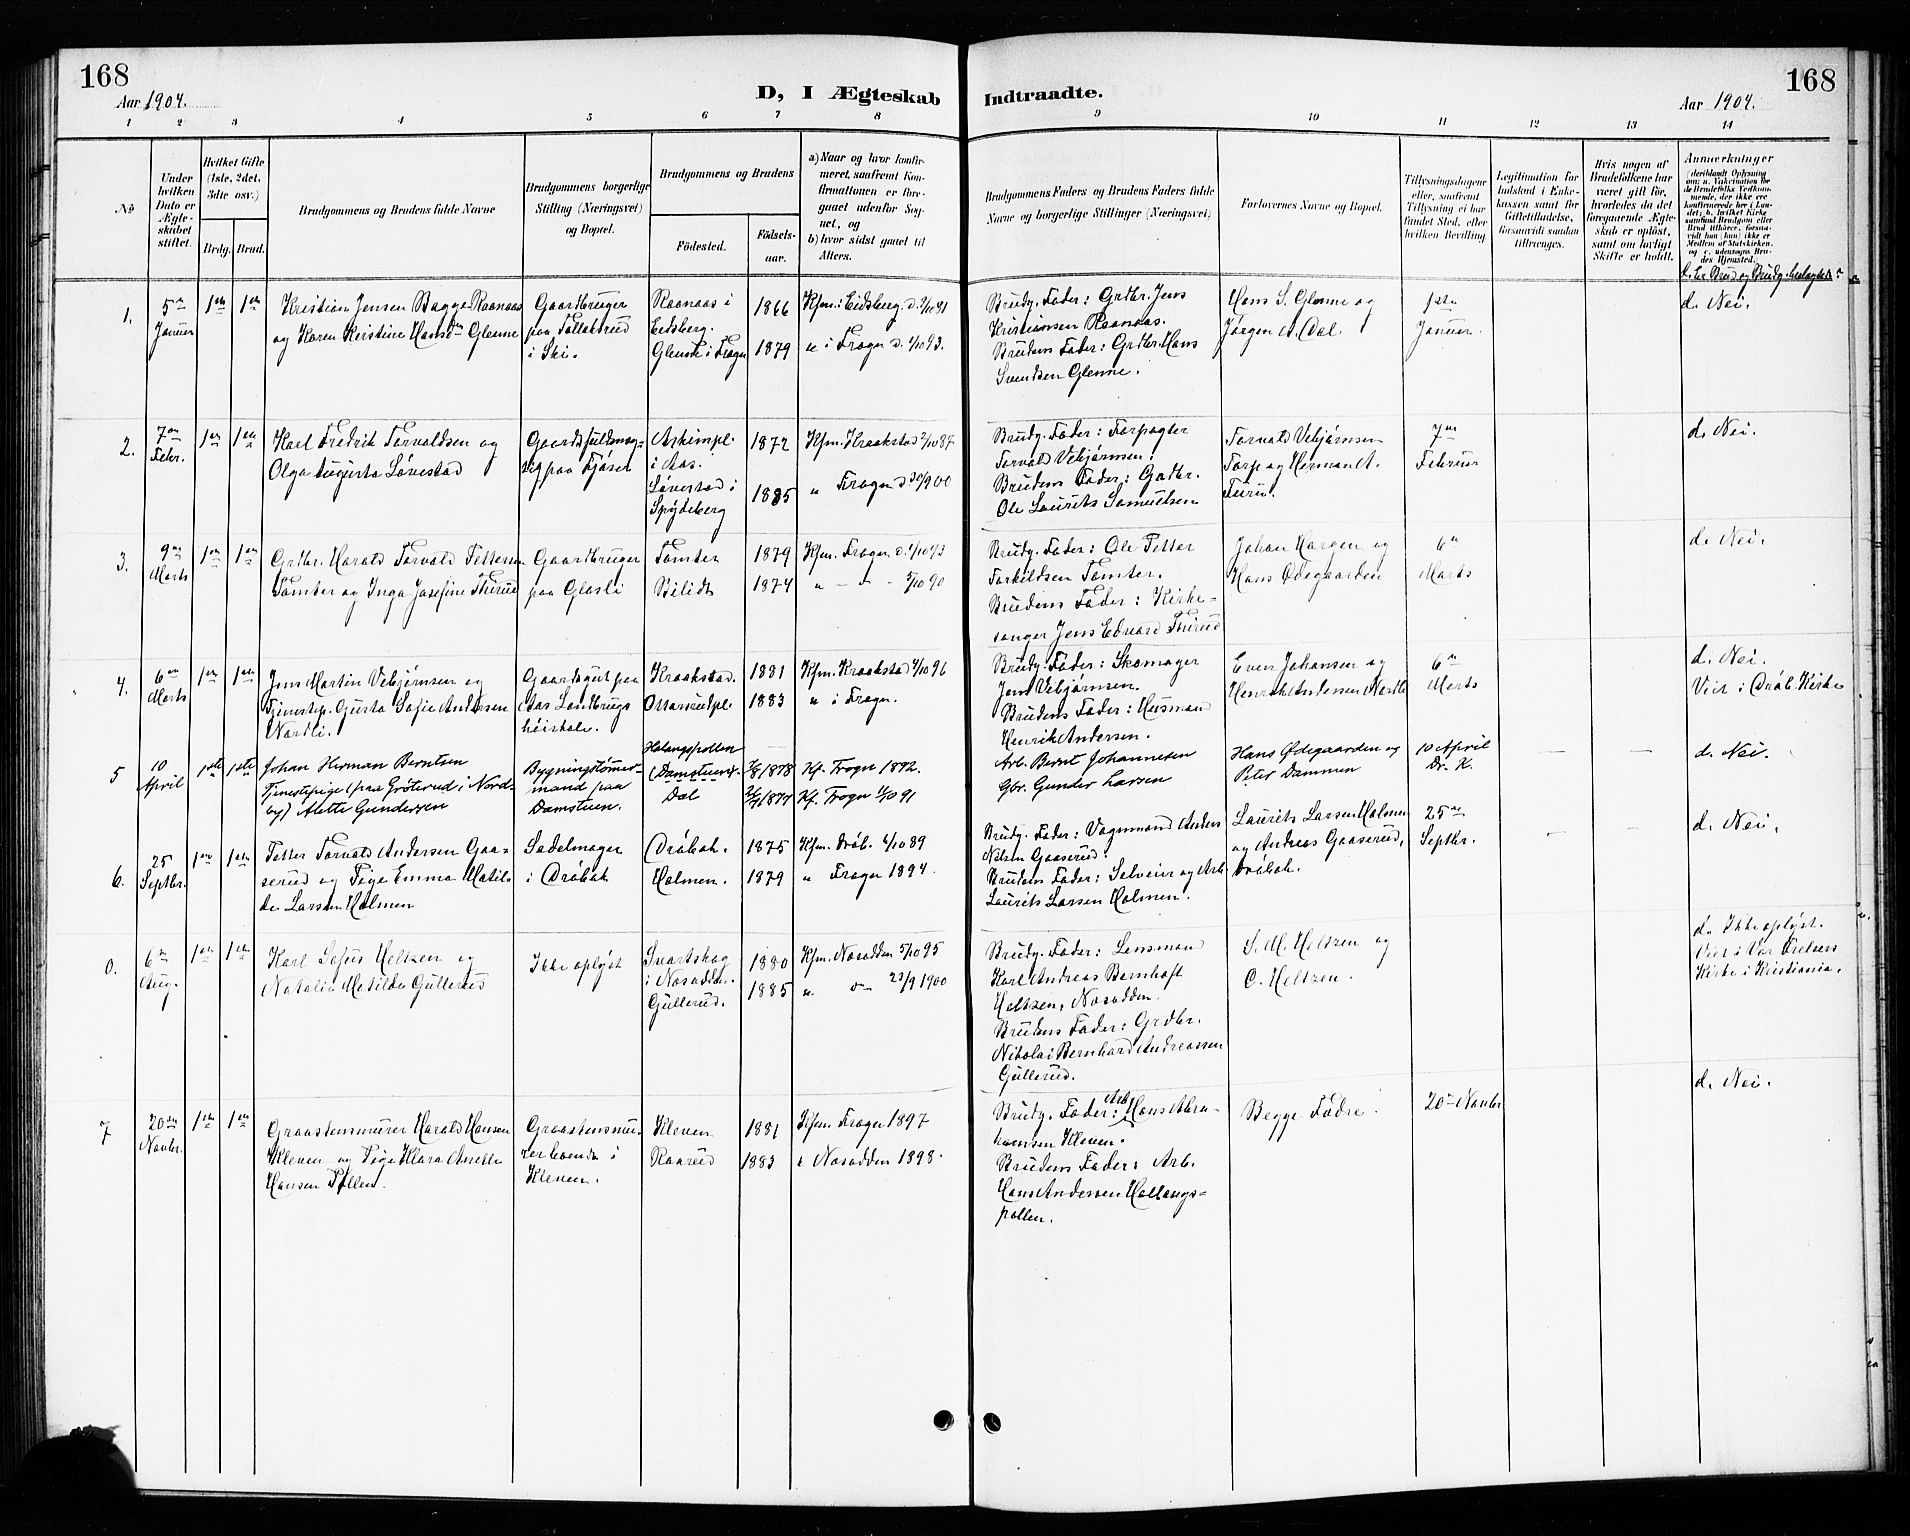 168
168
Aar 1904.
D, I Ægteskab Indtraadte.
Aar 1904.
1 2 3 4 5 6 7 8 9 10 11 12 13 14
№
Under hvilken Dato er Ægteskabet stiftet.
Hvilket Gifte (1ste, 2det, 3die osv.)
Brdg. Brud.
Brudgommens og Brudens fulde Navne
Brudgommens borgerlige Stilling (Næringsvei) og Bopæl.
Brudgommens og Brudens
Födested.
Födsels-aar.
a) Naar og hvor konfirmeret, saafremt Konfirmationen er foregaaet udenfor Sognet, og
b) hvor sidst gaaet til Alters.
Brudgommens Faders og Brudens Faders fulde Navne og borgerlige Stillinger (Næringsvei)
Forlovernes Navne og Bopæl.
Tillysningsdagene eller, saafremt Tillysning ei har fundet Sted, efter hvilken Bevilling.
Legitimation for Indskud i Enkekassen samt for Giftetilladelse, forsaavidt saadan tiltrænges.
Hvis nogen af Brudefolkene har været gift för, hvorledes da det foregaaende Ægteskab er oplöst, samt om lovligt Skifte er holdt.
Anmærkninger
(deriblandt Oplysning om: a. Vakcination for de Brudefolks Vedkommende, der ikke ere konfirmerede her i Landet; b. hvilket Kirkesamfund Brudgom eller Brud tilhörer, forsaavidt han (hun) ikke er Medlem af Statskirken, og c. udensogns Brudes Hjemsted.
d. Er Brud og Brudg. beslægtede?
1.
5te Januar
1ste 1ste
Kristian Jensen Bagge Raanaas
og Karen Kristine Hansdtr Glenne
Gaardbruger
paa Tollebrud
i Ski.
Raanaas i
Eidsberg.
Glenne i Frogn
1866
1879
Kfm. i Eidsberg d. 2/10 81
" i Frogn d. 1/10 93.
Brudg. Fader: Grdbr. Jens
Kristiansen Raanaas.
Brudens Fader: Grdbr. Hans
Svendsen Glenne.
Hans S. Glenne og
Jørgen A. Dal.
1ste
Januar.
d. Nei.
2.
7de Febr.
1ste 1ste
Karl Fredrik Torvaldsen og
Olga Augusta Løvestad
Gaardsfuldmægtig paa Fjøser
Askimpl.
i Aas.
Løvestad i
Spydeberg
1872
1885
Kfm. Kraakstad 2/10 87
" Frogn d. 30/9 00
Brudg. Fader: Forpagter
Torvald Vebjørnsen.
Brudens Fader: Grdbr.
Ole Laurits Samuelsen
Torvald Vebjørnsen
Torp og Herman A.
Furu.
7de
Februar
d. Nei.
3.
9de Marts
1ste 1ste
Grdbr. Harald Torvald Pettersen
Tomter og Inga Josefine Thirud
Gaardbruger
paa Glosli
Tomter
Bilidt
1879
1874
Kfm. Frogn d. 1/10 93
" — " — 5/10 90
Brudg. Fader: Ole Petter
Torkildsen Tomter.
Brudens Fader: Kirke-
sanger Jens Edvard Thirud
Johan Horgen og
Hans Ødegaarden
6te
Marts
d. Nei.
4.
6te Marts
1ste 1ste
Jens Martin Vebjørnsen og
Tjenestep. Gusta Sofie Andersen
Nordli.
Gaardsgut paa
Aas Landbrugs
høiskole.
Kraakstad.
Ottarsrudpl.
1881
1883
Kfm. Kraakstad 4/10 96
" i Frogn.
Brudg. Fader: Skomager
Jens Vebjørnsen.
Brudens Fader: Husmand
Henrik Andersen.
Even Johansen og
Henrik Andersen Nordli
6te
Marts
d. Nei.
Viet i Drøb. Kirke
5
10 April
1ste 1ste
Johan Herman Berntsen
Tjenestepige (paa Grøterud i Nordby) Alette Gundersen
Bygningstømmermand paa
Damstuen.
Halangspollen
(Damstuen)
Dal
7/8 1878
1877
Kf. Frogn 1892.
Kf. Frogn 11/10 91
Arb. Bernt Johannesen
Gbr. Gunder Larsen
Hans Ødegaarden og
Peter Dammen
10 April
Dr. K.
— —
d. Nei.
6.
25 Septbr.
1ste 1ste
Petter Torvald Andersen Gaa-
serud og Pige Emma Matil-
de Larsen Holmen
Sadelmager
i Drøbak
Drøbak.
Holmen.
1875
1879
Kfm. Drøb. 6/10 89
" Frogn 1894.
Brudg. Fader: Vognmand Anders
Nilsen Gaaserud.
Brudens Fader: Selveier og Arb.
Laurits Larsen Holmen.
Laurits Larsen Holmen
og Andreas Gaaserud,
Drøbak.
25de
Septbr.
— —
d. Nei.
0.
6te Aug.
1ste 1ste
Karl Sofus Heltzen og
Natalie Matilde Gullerud
Ikke oplyst
Svartskog
i Nesodden.
Gullerud.
1880
1885
Kfm. Nesodden 5/10 95
" do — 23/9 1900
Brudg. Fader: Lensmand
Karl Andreas Bernhoft
Heltzen, Nesodden.
Brudens Fader: Grdbr.
Nikolai Bernhard Andreassen
Gullerud.
S. M. Heltzen og
C. Heltzen.
d. Ikke oplyst.
Viet i Vor Frelsers
Kirke i Kristiania.
7
20de Novbr.
1ste 1ste
Graastensmurer Harald Hansen
Kleven og Pige Klara Anette
Hansen Pollen.
Graastensmu-
rer boende i
Kleven.
Kleven
Raarud
1881
1883
Kfm. Frogn 1897
" Nesodden 1898.
Brudg. Fader: Arb. Hans Abra-
hamsen Kleven.
Brudens Fader: Arb.
Hans Andersen Hallangs-
pollen.
Begge Fædre.
20de Novbr
d. Nei.